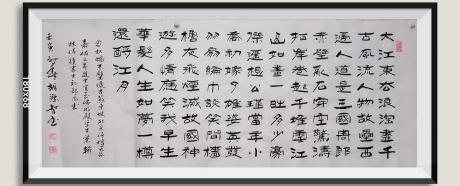 大江東去浪淘盡千
古風流人物故壘西
邊人道是三國周郎
赤壁亂石穿空驚濤
拍岸卷起千堆雪江
山如畫一時多少豪
傑遙想公瑾當年小
喬初嫁了雄姿英發
羽扇綸巾談笑間檣
櫓灰飛煙滅故國神
遊多情應笑我早生
華髮人生如夢一樽
還酹江月
180X68